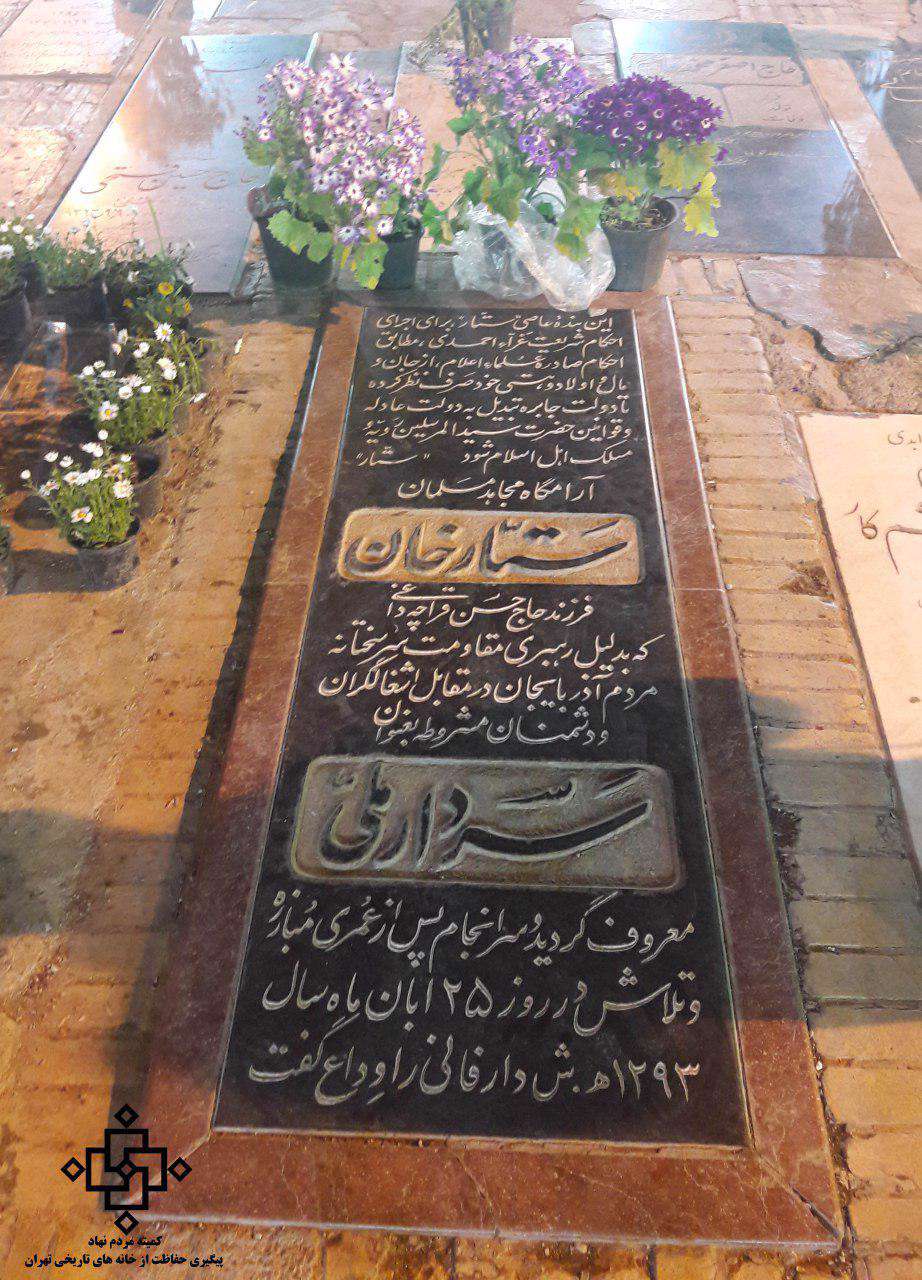 این بنده عاصی "ستار" برای اجرای
احکام شریعت غراء احمدی، مطابق
احکام صادره علماء اعلام، از جان و
مال و اولاد و هستی خود صرف نظر کرده
تا دولت جابره تبدیل به دولت عادله
و قوانین حضرت سیدالمرسلین رویه و
مسلک اهل اسلام شود "ستار"
آرامگاه مجاهد مسلمان
ستارخان
فرزند حاج حسن قراچه داغی
که بدلیل رهبری مقاومت سرسختانه
مردم آذربایجان در مقابل اشغالگران
و دشمنان مشروطه بعنوان
سردار ملی
معروف گردید و سرانجام پس از عمری مبارزه
و تلاش در روز ۲۵ آبان ماه سال
۱۲۹۳ ه.ش دار فانی را وداع گفت
کمیته مردم نهاد
پیگیری حفاظت از خانه های تاریخی تهران